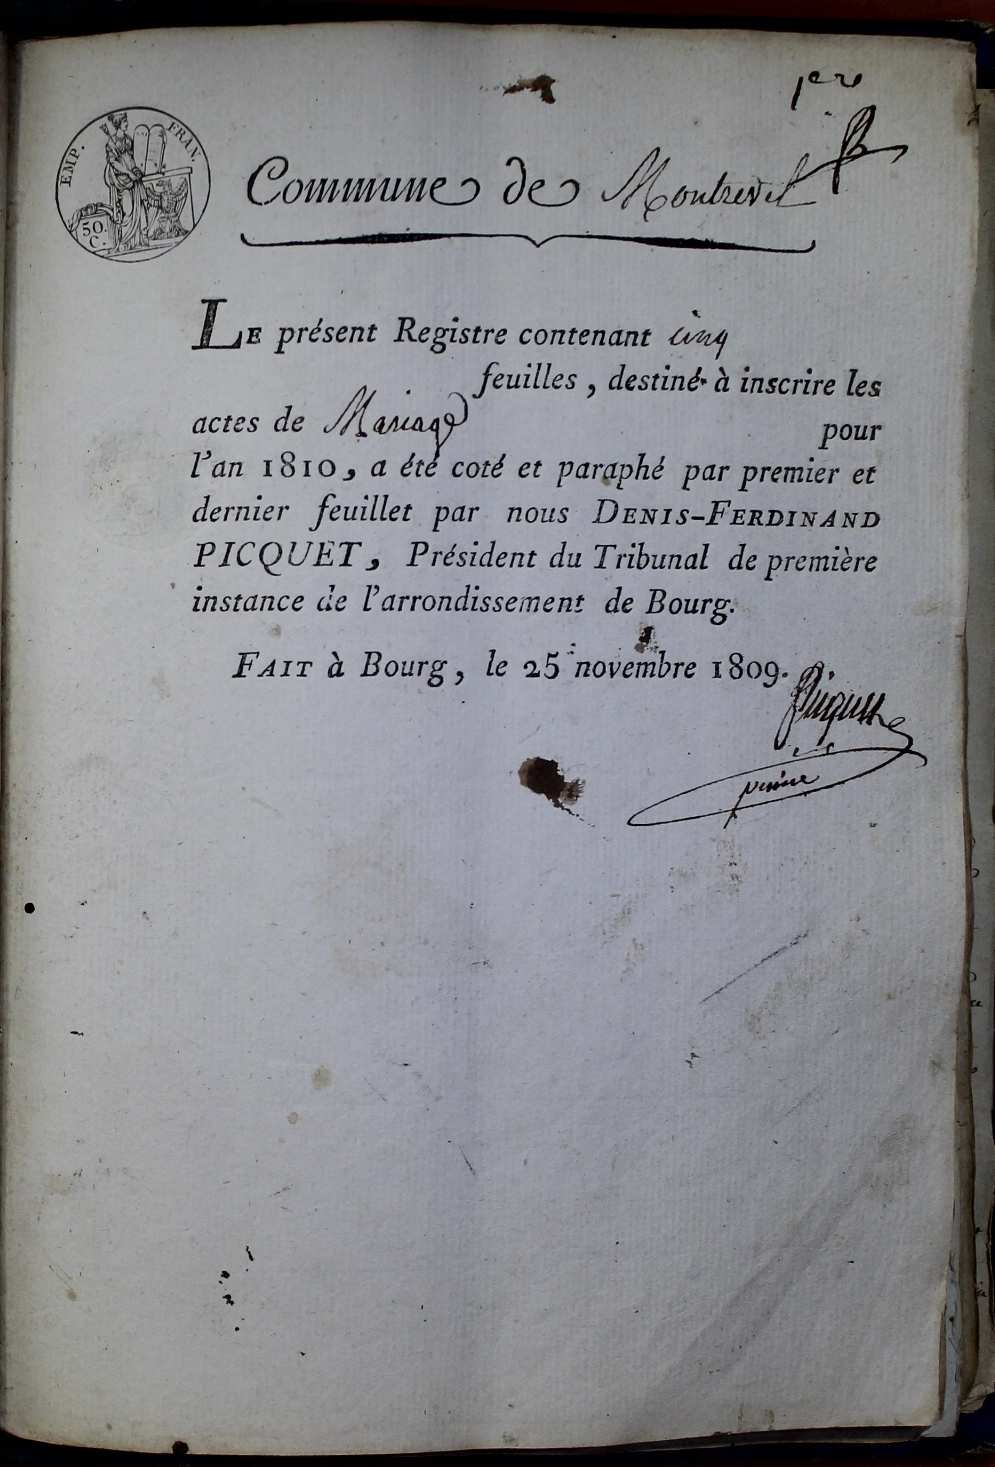 pre
EMP. FRAN.
50.
C.
Commune de Montrevel
LE présent Registre contenant cinq
feuilles, destiné à inscrire les
actes de Mariage pour
l'an 1810, a été coté et paraphé par premier et
dernier feuillet par nous DENIS-FERDINAND
PICQUET, Président du Tribunal de première
instance de l'arrondissement de Bourg.
FAIT à Bourg, le 25 novembre 1809.
Picquet